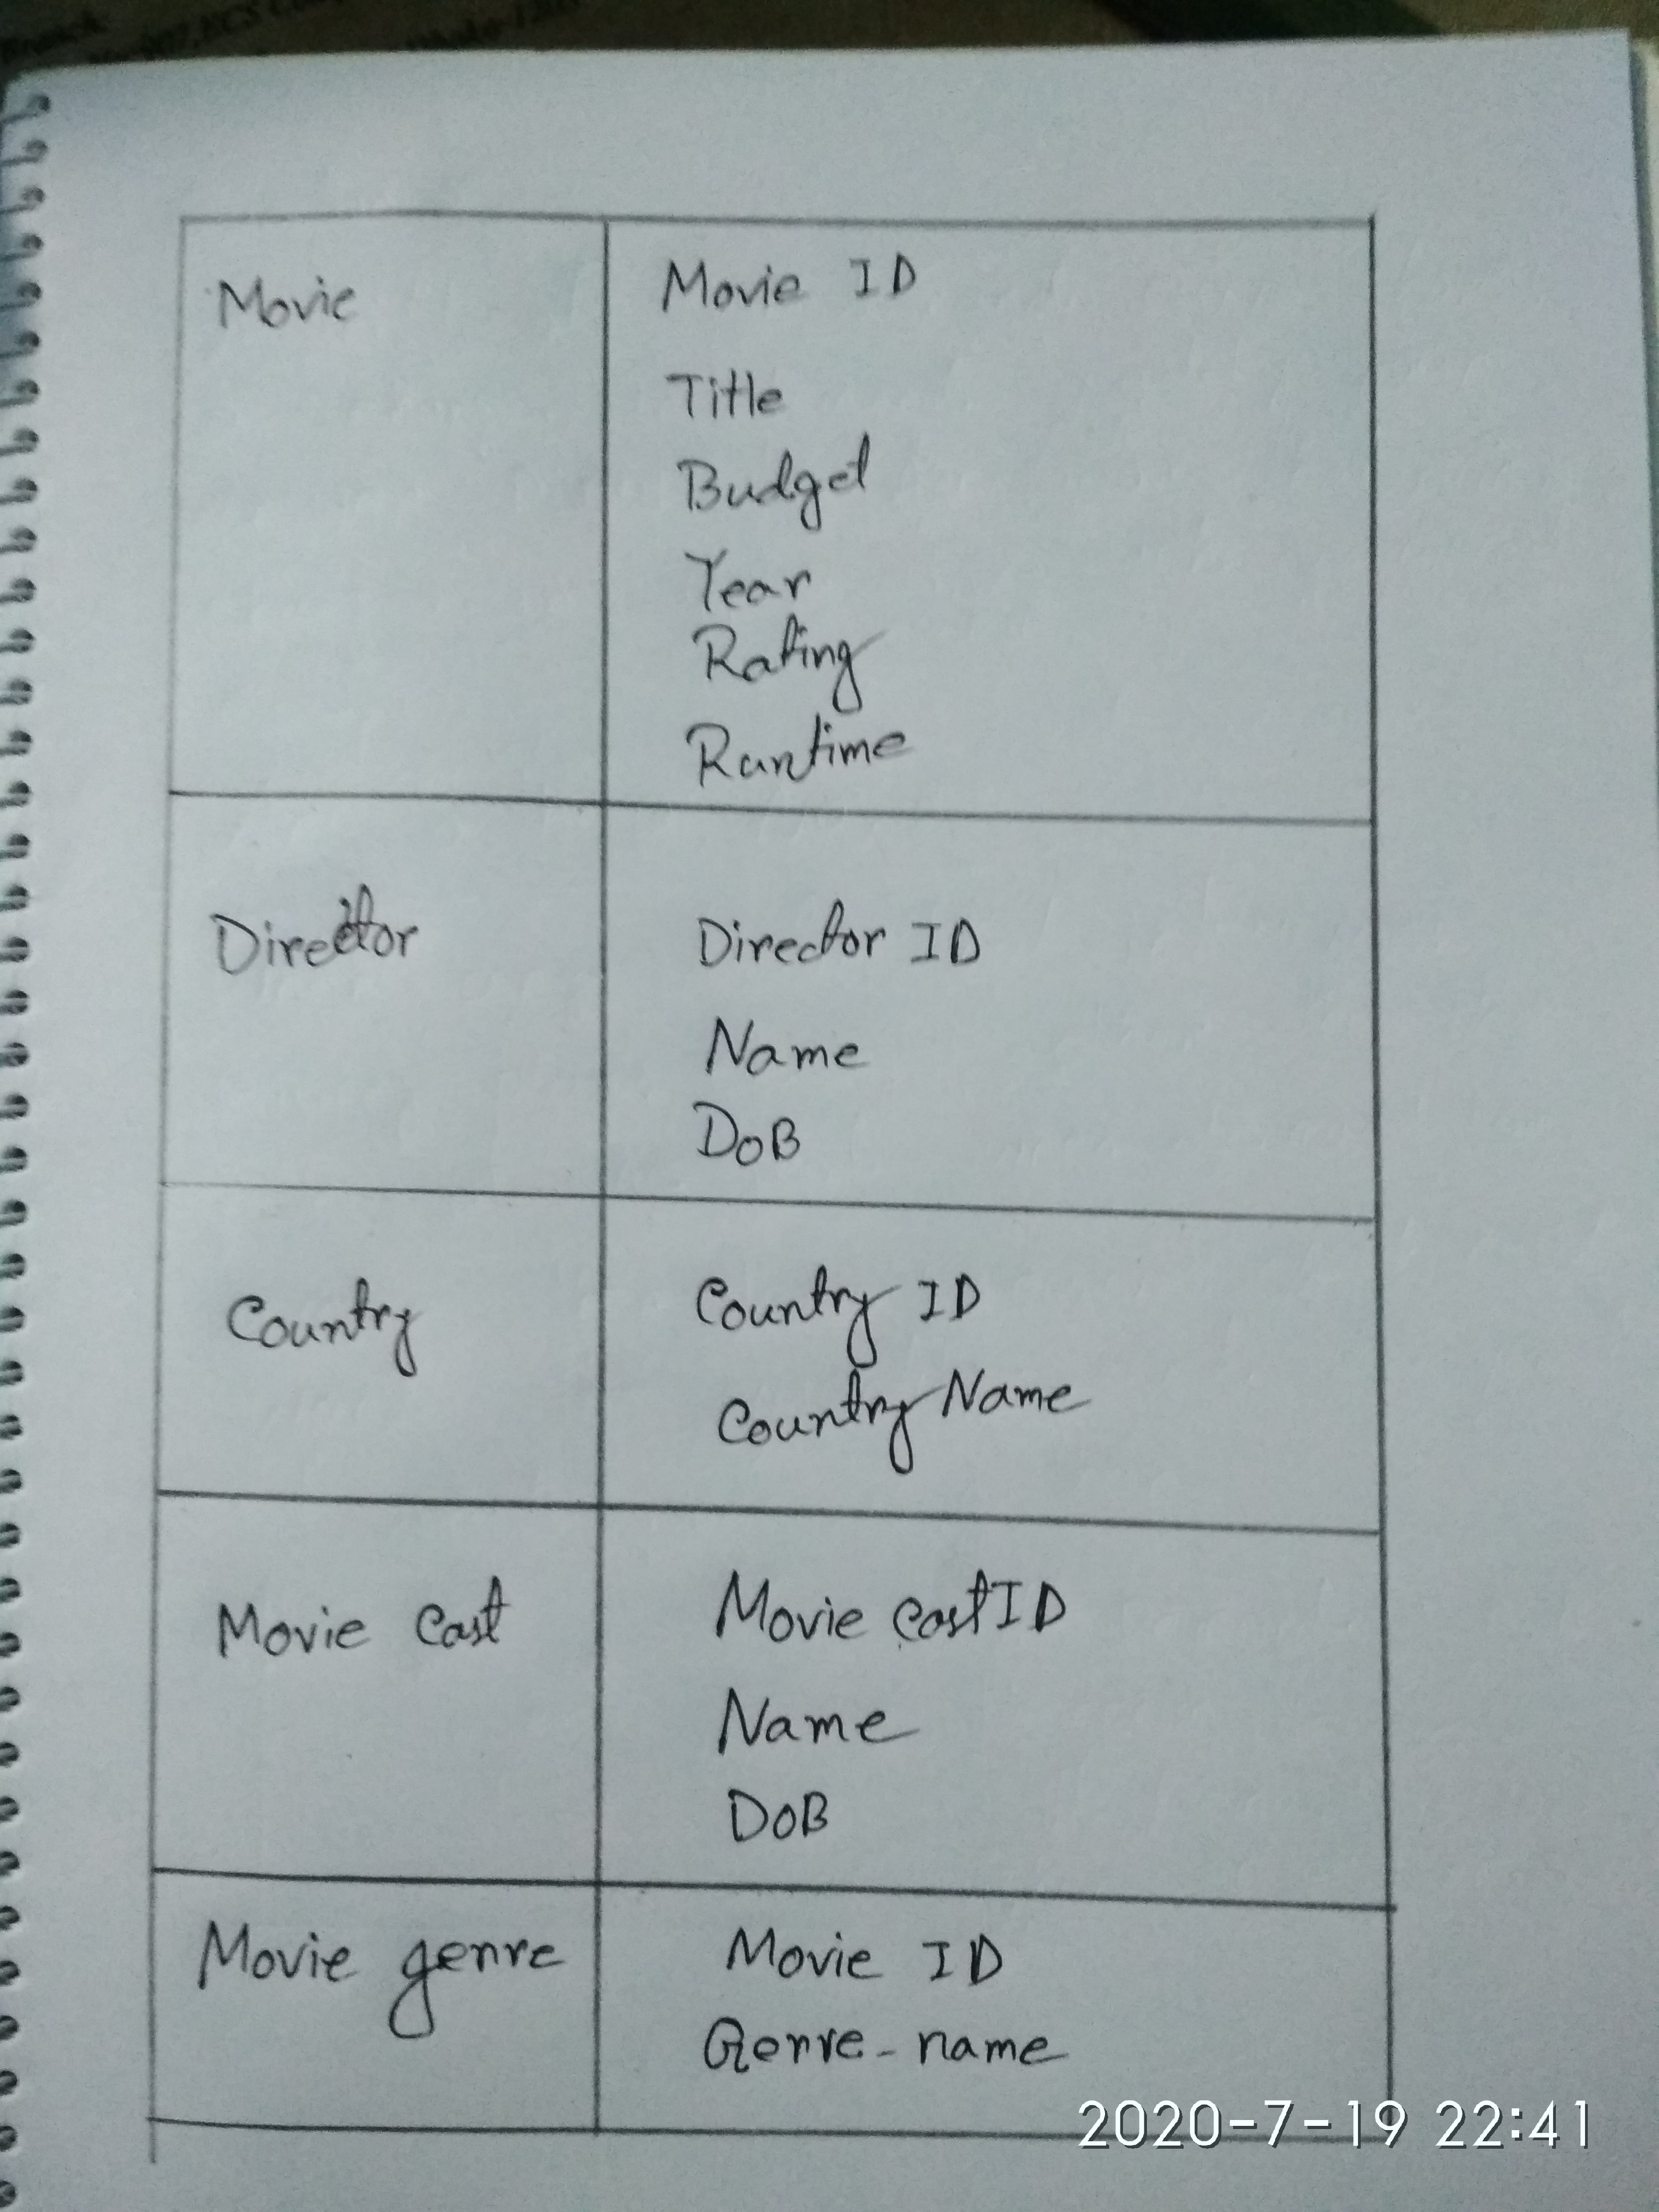 Movie
Movie ID
Title
Budget
Year
Rating
Runtime
Director
Director ID
Name
DoB
Country
Country ID
Country Name
Movie Cast
Movie cast ID
Name
DoB
Movie genre
Movie ID
Genre-name
2020-7-19 22:41